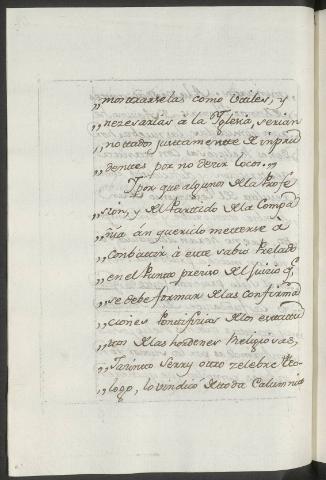 „mostrarselas como utiles, y
„nezesarias à la Yglesia, serian
„nottados justtamente de inpru
„denttes por no dezir locos.„
Y por que algunos de la Profe
sion, y del Parttido de la Compa
„ñia àn querido metterse à
„Conbattir à estte sabio Prelado
„en el Puntto preziso del juizio qe.
„se debe formar de las Confirma
„ciones Ponttifizias de los esttattu
„ttos de las hordenes Religiosas,
„Jazintto Serry ottro zelebre Theo-
„logo, lo vindicò de ttoda Calumnia